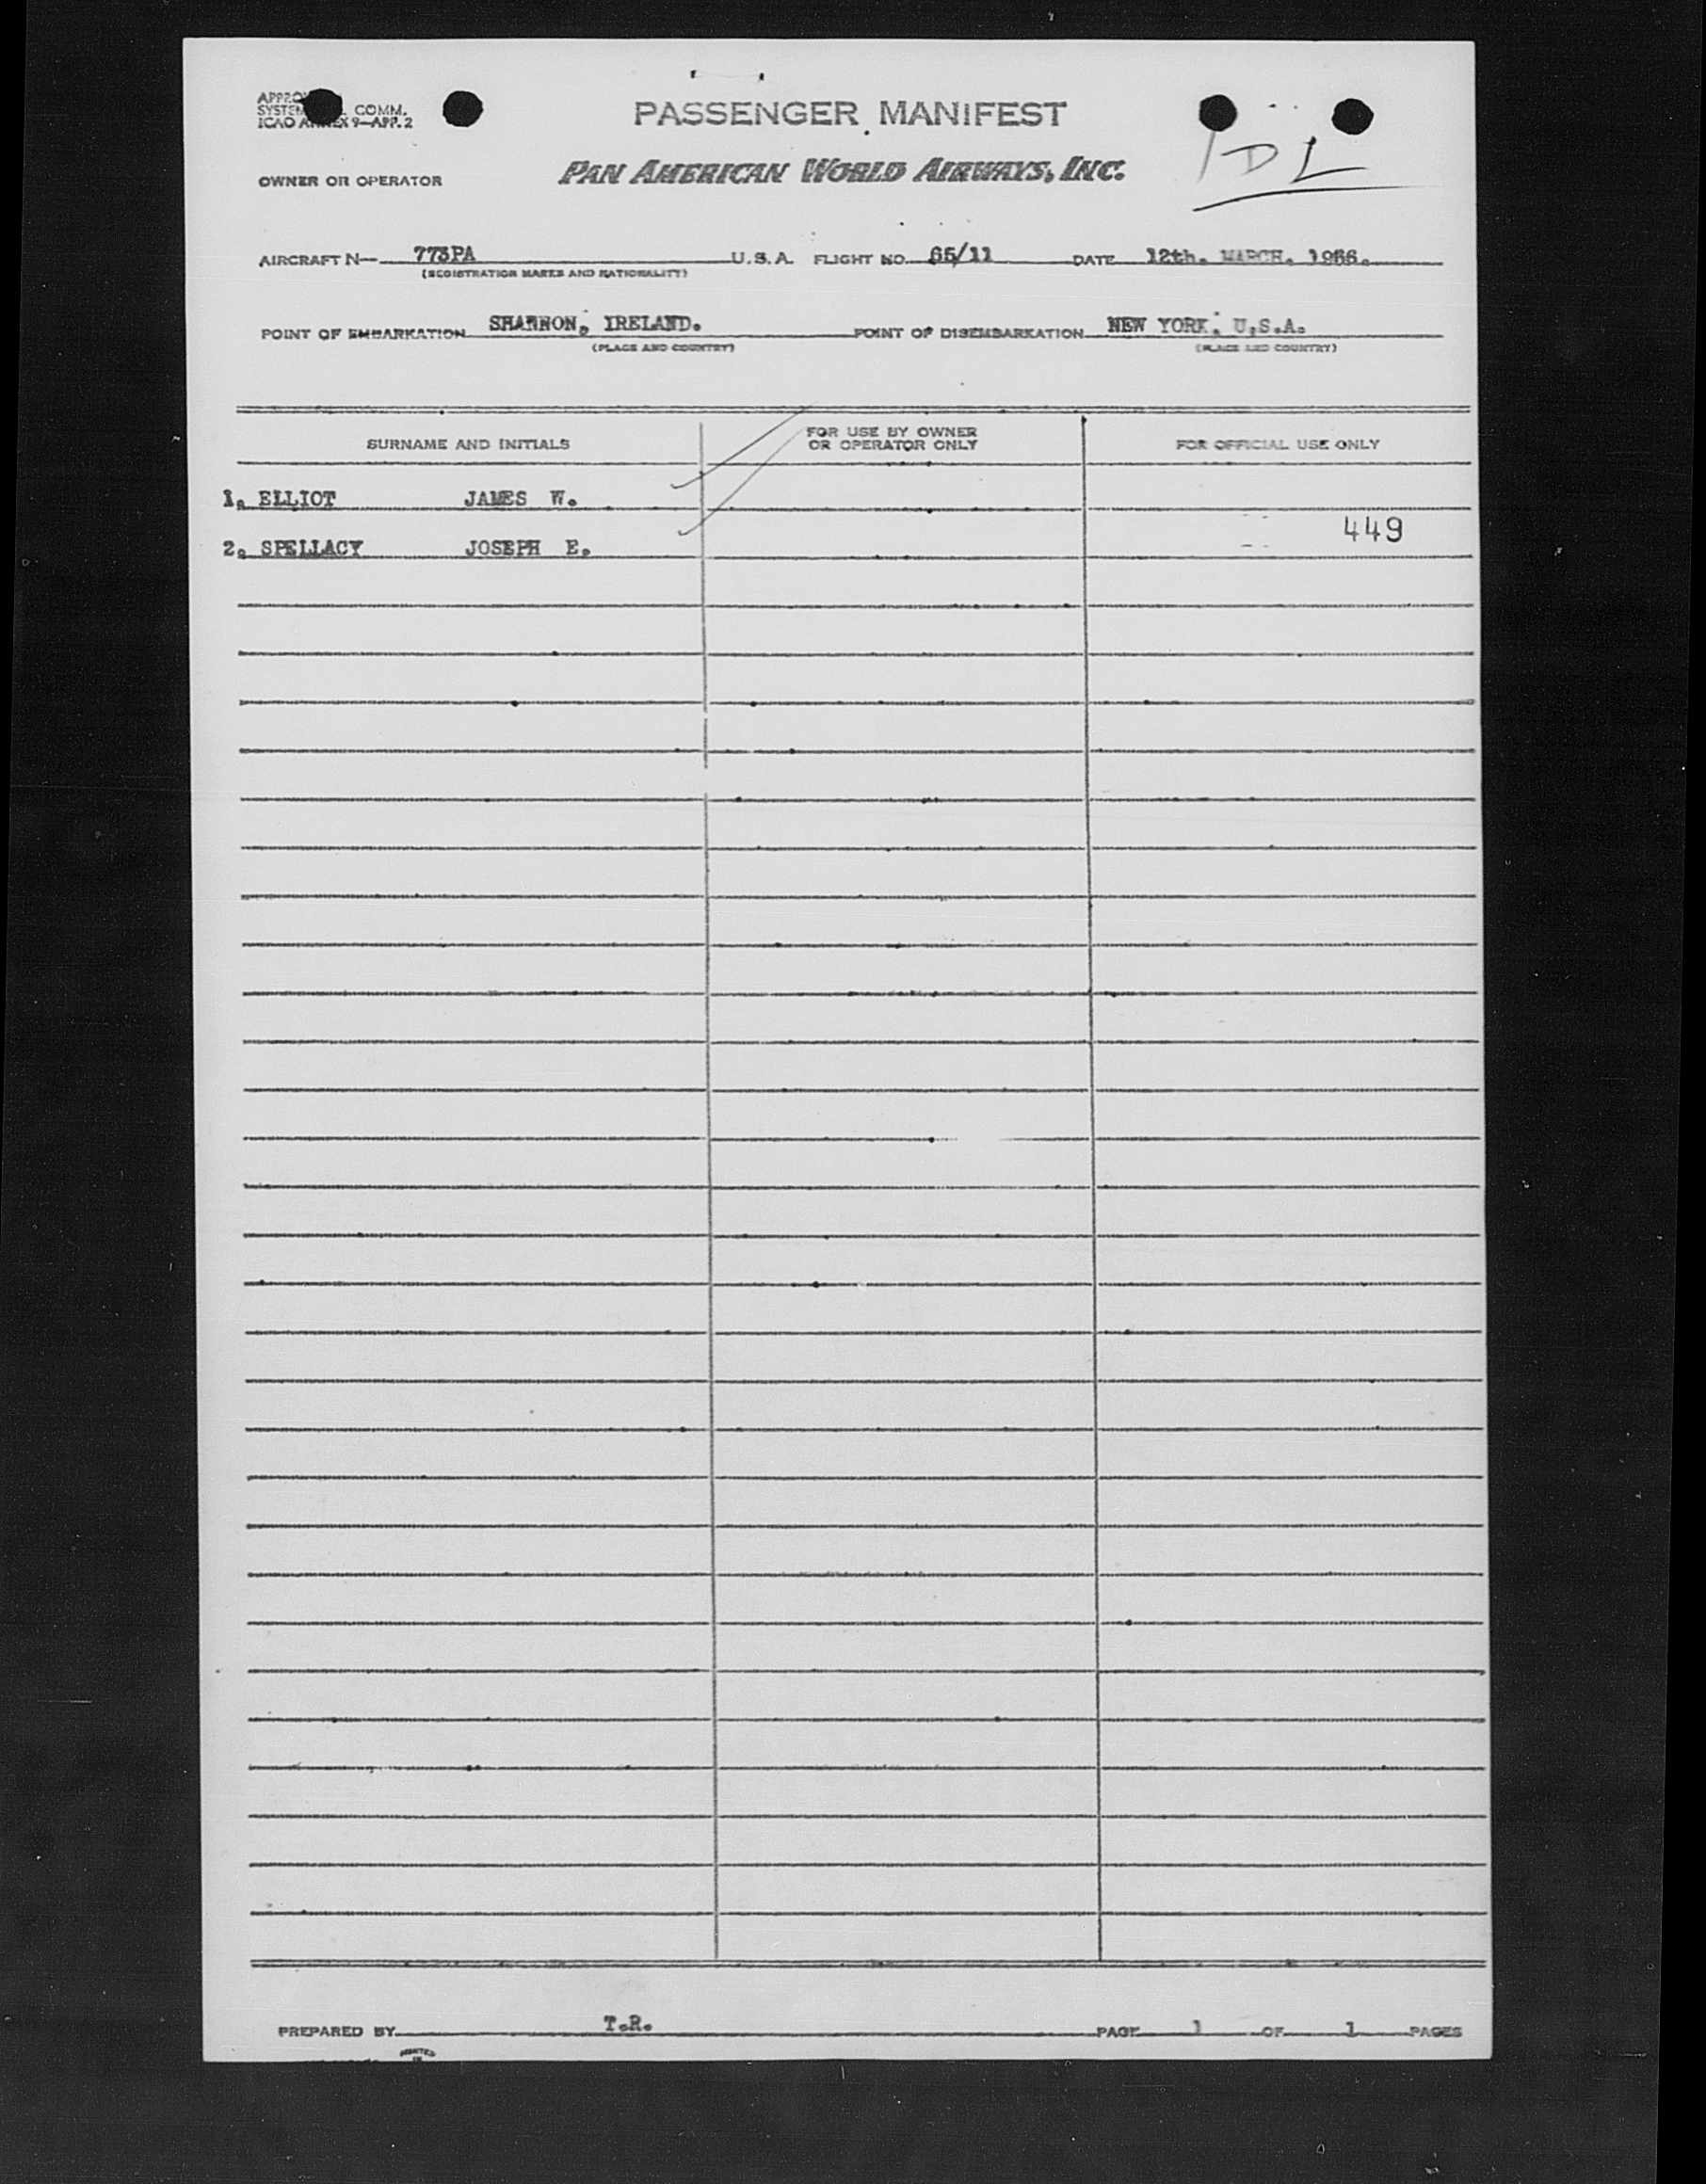 PASSENGER MANIFEST
COMM.
ICAO ANNEX 9—APP. 2
OWNER OR OPERATOR PAN AMERICAN WORLD AIRWAYS, INC.
DL
AIRCRAFT N— 773PA U.S.A. FLIGHT NO. 65/11 DATE 12th. MARCH. 1966.
(REGISTRATION MARKS AND NATIONALITY)
POINT OF EMBARKATION SHANNON, IRELAND. POINT OF DISEMBARKATION NEW YORK. U.S.A.
(PLACE AND COUNTRY) (PLACE AND COUNTRY)
SURNAME AND INITIALS FOR USE BY OWNER OR OPERATOR ONLY FOR OFFICIAL USE ONLY
1. ELLIOT JAMES W.
449
2. SPELLACY JOSEPH E.
PREPARED BY T.R. PAGE 1 OF 1 PAGES